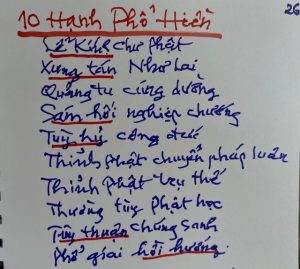 26
10 Hạnh Phổ Hiền
Lễ Kính chư phật
Xưng tán Như Lai
Quảng tu cúng dường
Sám hối nghiệp chướng
Tuỳ hỷ công đức
Thỉnh phật chuyển pháp luân
Thỉnh Phật trụ thế
Thường tùy Phật học
Tùy thuận chúng sanh
Phổ giai hồi hướng.